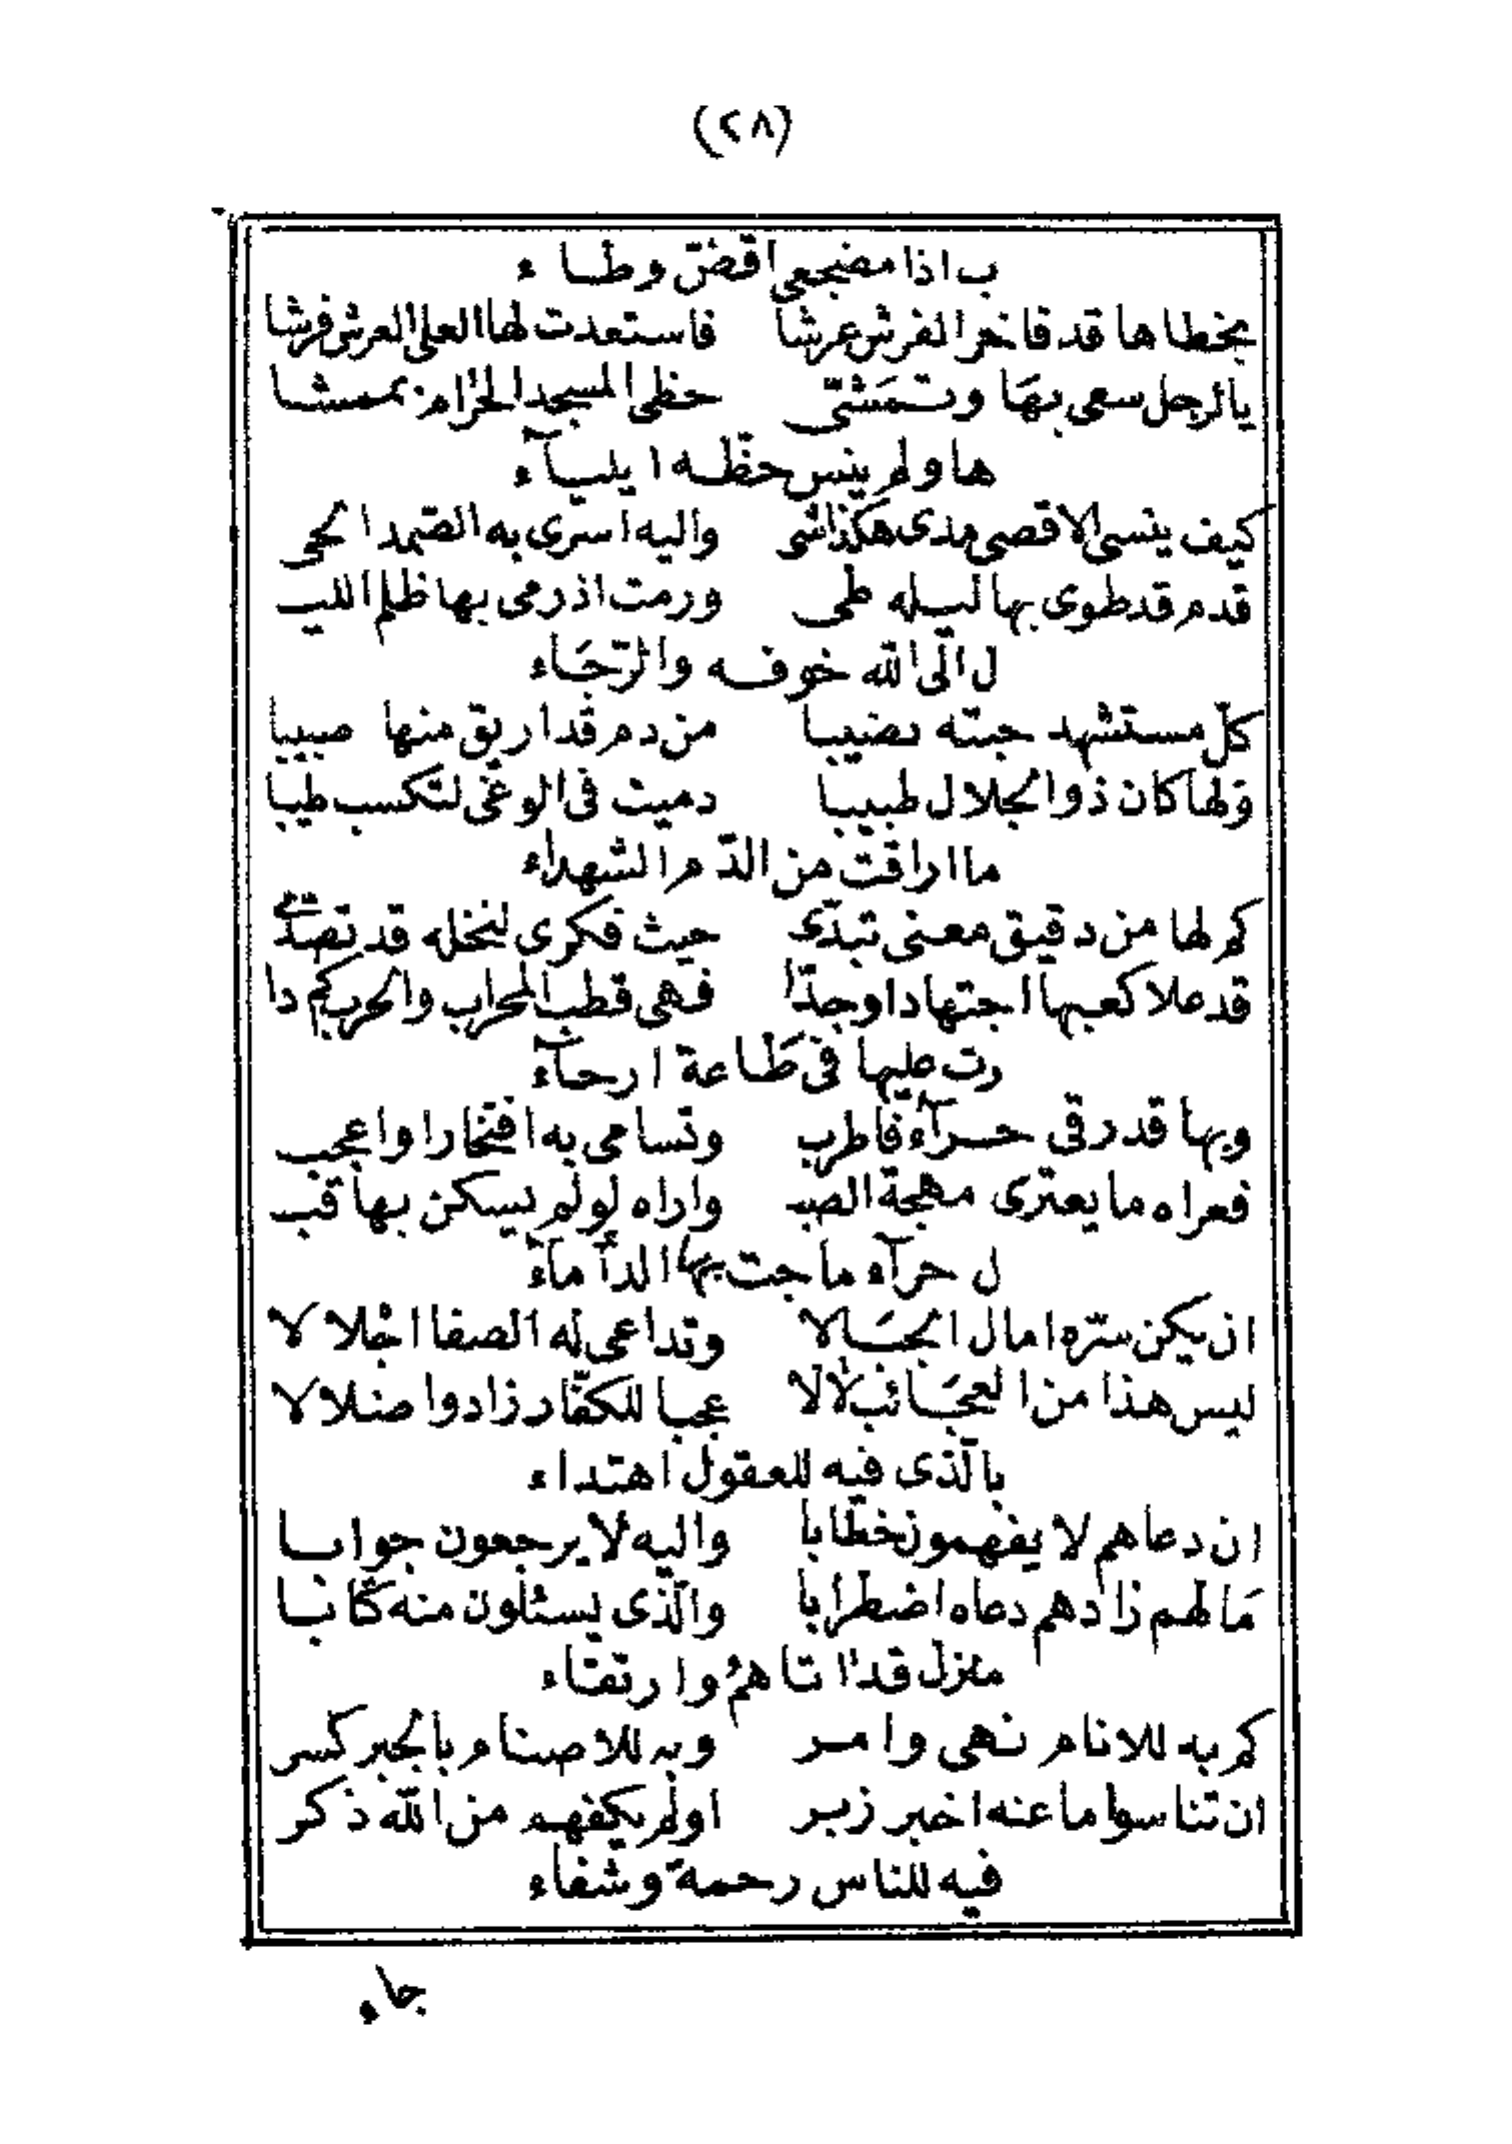 (٢٨)
ب اذا مضجعى اقضّ وطاء
بخطاها قد فاخر الفرش عرشا فاستعدت لها العلى العرش فرشا
يا لرجل سعى بهَا وتمَشّى حظى المسجد الحرام بممشا
ها ولم ينس حظّه ايليآء
كيف ينسى الاقصى مدى هكذا شى واليه اسرى به الصّمد الحى
قدم قد طوى بها ليله طى ورمت اذ رمى بها ظلم الليـ
ل الى الله خوفه والرّجَاء
كلّ مستشهد جبته نصيبا من دم قد اريق منها صبيبا
ولها كان ذو الجلال طبيبا دميت فى الوغى لتكسب طيبا
ما اراقت من الدّم الشهداء
كم لها من دقيق معنى تبدّى حيث فكرى لنخله قد تصدّى
قد علا كعبها اجتهادا وجدّا فهى قطب المحراب والحرب كم دا
رت عليها فى طَاعة ارحآء
وبها قد رقى حرآء فاطرب وتسامى به افتخارا واعجب
فعراه ما يعترى مهجة الصب واراه لو لم يسكن بها قبـ
ل حرآء ماجت بها الدأمآء
ان يكن سرّه امال الجبَالا وتداعى له الصفا اجلالا
ليس هذا من العجَائب لالا عجبا للكفّار زادوا ضلالا
بالّذى فيه للعقول اهتداء
ان دعاهم لا يفهمون خطابا واليه لا يرجعون جوابا
مَا لهم زادهم دعاه اضطرابا والّذى يسئلون منه كتابا
منزل قد اتاهم وارتقاء
كم به للانام نهى وامر وبه للاصنام بالجبر كسر
ان تناسوا ما عنه اخبر زبر اولم يكفهم من الله ذكر
فيه للناس رحمة وشفاء
جاء